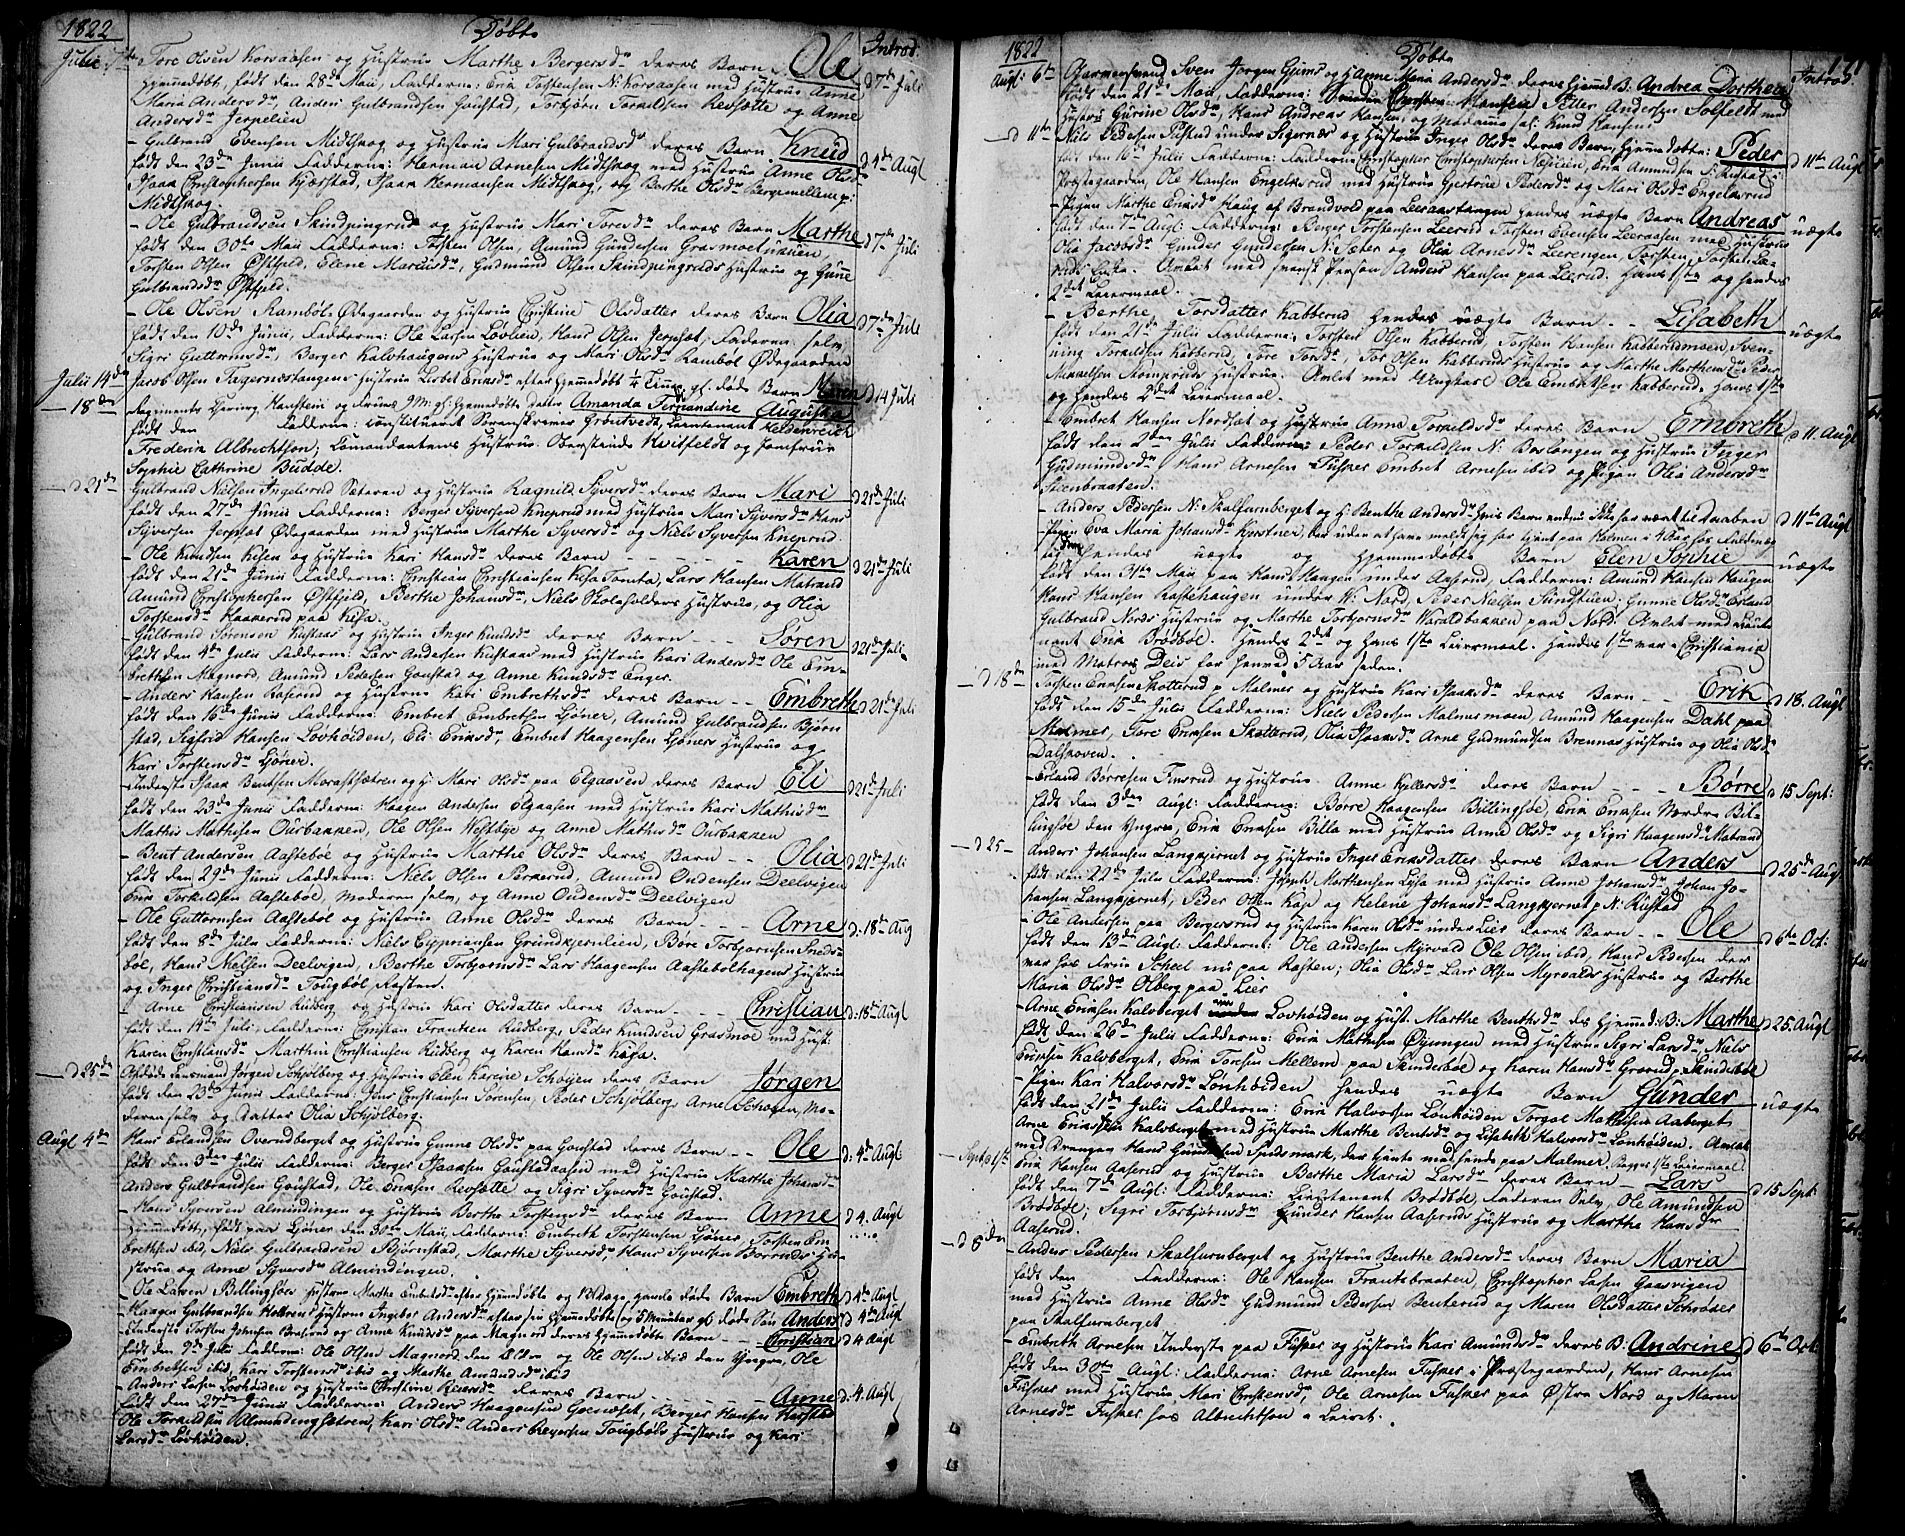 1822
Døbte
Introd.
Julii 7de Tore Olsen Korsaasen og Hustrue Marthe Bergersdr deres Barn Ole d 7de Juli
Hjemmedøbt, født den 28de Maii, Fadderne: Erik Tostensen N: Korsaasen med Hustrue Anne
Maria Andersdr, Anders Gulbrandsen Goustad, Torbjøn Torkildsen Refsætte og Anne
Andersdr Jerpelien
- Gulbrand Evensen Midtskog og Hustrue Mari Gulbrandsdr deres Barn Knud d 4de Augl
født den 23de Junii Fadderne: Herman Arnesen Midtskog med Hustrue Anne Olsdr
Isaak Christophersen Kjærstad, Isaak Hermansen Midtskog, og Berthe Olsdr Bergemellem p:
Midtskog.
- Ole Gulbrandsen Skindpungrud og Hustrue Mari Toresdr deres Barn Marthe d 7de Juli
født den 30te Maii Fadderne: Tosten Olsen, Amund Gundersen Grasmoestuen
Torsten Olsen Østfjeld, Elene Mariusdr, Gudmund Olsen Skindpungruds Hustrue og Gune
Gulbrandsdr Østfjeld.
- Ole Olsen Rambøl Ødegaarden og Hustrue Christine Olsdatter deres Barn Olia d 7de Juli
født den 10de Junii, Fadderne: Ole Larsen Lovlien, Hans Olsen Jerpset, Faderen selv,
Sigri Guttormsdr, Berger Kalvhaugens Hustrue og Mari Olsdr Rambøl Ødegaarden
Julii 14de Jacob Olsen Tagernæstangens Hustrue Lisbet Eriksdr efter Hjemmedøbt 1/4 Time gl. døde Barn Maren d 14 Juli
- 18de Regiments Chirurg Hanstein og Frues Hjemmedøbte Datter Amanda Fernandine Augusta
født den Fadderne: constitueret Sorenskriver Grøntvedt, Lieutenant Heldenreich
Frederik Albrechtson, Comandantens Hustrue Oberstinde Kvitfeldt og Jomfrue
Sophie Cathrine Budde.
- d 21de Gulbrand Nielsen Ingelsrud Sæteren og Hustrue Ragnild Syversdr deres Barn Mari d 21de Juli
født den 27de Junii Fadderne: Berger Syversen Kneprud med Hustrue Mari Syversdr Hans
Syversen Jerpset Ødegaarden med Hustrue Marthe Syversdr og Niels Syversen Kneprud
- Ole Knudsen Kisen og Hustrue Kari Hansdr deres Barn - - - Karen d 21de Juli
født den 21de Junii Fadderne: Christian Christiansen Kisa Tomta, Lars Hansen Matrand
Amund Christophersen Østfjeld, Berthe Johansdr, Niels Skoleholders Hustrue, og Olia
Tostensdr Haakerud paa Kisa.
- Gulbrand Sørensen Kustaas og Hustrue Inger Knudsdr deres Barn - - - Søren d 21de Juli
født den 4de Julii Fadderne: Lars Andersen Kustaas med Hustrue Kari Andersdr Ole Em-
brethsen Magnord, Amund Pedersen Goustad og Anne Knudsdr Enger.
- Anders Hansen Raserud og Hustrue Kari Embrethsdr deres Barn - - Embreth d 21de Juli
født den 16de Junii Fadderne: Embret Embretsen Ljøner, Amund Gulbrandsen Bjørn
stad, Sigfrid Hansen Lovhøiden, Eli Eriksdr, Embret Haagensen Ljøners Hustrue og
Kari Torstensdr Ljøner.
- Inderste Isaak Bentsen Morastsætren og H: Mari Olsdr paa Elgaasen deres Barn Eli d 21de Juli
født den 23de Junii Fadderne: Haagen Andersen Elgaasen med Hustrue Kari Mathisdr
Mathis Mathisen Ourbakken, Ole Olsen Westbye og Anne Mathisdr Ourbakken
- Bent Andersen Aastebøe og Hustrue Marthe Olsdr deres Barn - - Olia d 21de Juli
født den 29de Junii Fadderne: Niels Olsen Perkerud, Amund Oudensen Deelvigen
Erik Torkildsen Aastebøe, Moderen selv, og Anne Oudensdr Deelvigen
- Ole Guttormsen Aastebøl og Hustrue Anne Olsdr deres Barn - - - Arne d: 18de Aug
født den 8de Julii Fadderne: Niels Cipriansen Grundkjernlien, Børe Torbjørnsen Sneds-
bøe, Hans Nielsen Deelvigen, Berthe Torbjørnsdr Lars Haagensen Aastebølhagens Hustrue
og Inger Christiansdr Tougbøl Rasten.
- Arne Christiansen Rudberg og Hustrue Kari Olsdatter deres Barn - - Christian d: 18de Augl
født den 14de Juli, Fadderne: Christian Frantsen Rudberg, Peder Knudsen Grasmoe med Hust:
Karen Christiansdr Marthin Christiansen Rudberg og Karen Hansdr Kisa.
- d 25de Afdøde Lensmand Jørgen Schjølberg og Hustrue Elen Karine Schøyen deres Barn Jørgen
født den 23de Junii Fadderne: Jens Christiansen Sørensen, Peder Schjølberg, Arne Schøyen, Mo-
deren selv og Datter Olia Schjølberg.
Augl 4de Hans Erlandsen Overudberget og Hustrue Gunne Olsdr paa Goustad deres Barn - - Ole d: 4de Augl
født den 3de Julii Fadderne: Berger Isaaksen Goustadaasen med Hustrue Marthe Johansdr
Anders Gulbrandsen Goustad, Ole Eriksen Revsætte og Sigri Syversdr Goustad.
- Hans Syversen Almindingen og Hustrue Berthe Torstensdr deres Barn Anne d 4. Augl
Hjemmedøbt, født paa Ljøner den 30te Maii, Fadderne: Embreth Torstensen Ljøner, Torsten Em
brethsen ibid, Niels Gulbrandsen Bjørnstad, Marthe Syversdr, Hans Syversen Borruds Hu-
strue og Anne Syversdr Almindingen.
- Ole Larsen Billingsøes Hustrue Marthe Embretsdr efter Hjemmedøbte og 1/2 Dags gamle døde Barn Embreth d 4de Augl
- Haagen Gulbrandsen Hustrue Ingebor Andersdr efter sin Hjemmedøbte (og 5 Minuter gl) døde Søn Anders d 4de Augl
- Inderste Torsten Johnsen Braserud og Anne Knudsdr paa Magnord deres Hjemmedøbte Barn - - Christian d 4 Augl
født den 9de Julii Fadderne: Ole Olsen Magnord den Eldre og Ole Olsen ibid den Yngre, Ole
Embretsen ibid, Kari Torstensdr ibid og Marthe Amundsdr ibid
- Anders Larsen Lovhøiden og Hustrue Christine deres Barn - - - Anne d: 4. Augl
født den 27de Junii Fadderne: Anders Haagensen Grenæset, Berger Hansen Harstad
Ole Torkildsen Almindingsæteren, Kari Olsdr Anders Reyersen Tougbøls Hustrue og Kari
Larsdr Lovhøiden.
1822
Døbte
Introd.
Augl: 6te Garnersvend Sven Jørgen Gjems og H Anne Maria Andersdr deres Hjemmd B: Andrea Dorthea
født den 21de Maii, Fadderne: Christen Hansen Petter Andersen Solfeldt med
Hustrue Gurine Olsdr, Hans Andreas Hansen, og Madame sal: Knud Hansens
- d 11te Niels Pedersen Pustrud under Sigernæs og Hustrue Inger Olsdr deres Barn, Hjemmedøbte: Peder d 11te Augl
født den 16de Julii Fadderne: Christopher Christophersen Næslien, Erik Amundsen N: Rustad i
Præstegaarden, Ole Hansen Engelsrud med Hustrue Gjertrue Pedersdr og Mari Olsdr Engelsrud
- Pigen Marthe Eriksdr Haug af Brandvold paa Leeraastangen hendes uægte Barn Andreas uægte
født den 7de Augl: Fadderne: Berger Torstensen Leerud Torsten Evensen Leeraasen med Hustrue
Olia Jacobsdr Gunder Gundersen N: Sæter og Olia Arnesdr Leerengen, Torsten
Avlet med svensk Person Anders Hansen paa Leerud. Hans 1ste og hendes
2det Leiermaal.
- Berthe Torsdatter Kabberud hendes uægte Barn - - Lisabeth uægte
født den 21de Julii Fadderne: Torsten Olsen Kabberud, Torsten Hansen Kabberudmoen, Sven-
ning Torkildsen Kabberud, Tore Torsdr, Tor Olsen Kabberuds Hustrue og Marthe Marthensdr Peder
Mikkelsen Stomperuds Hustrue. Avlet med Ungkarl Ole Embretsen Kabberud. Hans 1ste
og Hendes 2det Leiermaal.
- Embret Hansen Nordset og Hustrue Anne Torkildsdr deres Barn Embreth d 11. Augl
født den 2den Julii Fadderne: Peder Torkildsen N: Boslangen og Hustrue Inger
Gudmundsdr, Hans Arnesen Fusker Embret Arnesen ibid og Pigen Olia Andersdr
Steenbraaten.
- Anders Pedersen N: Skalfurnberget og H: Benthe Andersdr hvis Barn endnu ikke har vært til Daaben d 11te Augl
- Pigen Eva Maria Johansdr Kjerstner, har uden at have meldt sig har tjent paa Malmer i 4 Aar hos
og hendes uægte og hjemmedøbte Barn Elen Sophie uægte
født den 31te Maii paa Hans Haugen under Aaserud, Fadderne: Amund Hansen Haugen
Hans Hansen Rastehaugen under W: Nord, Peder Nielsen Sundstuen: Gunne Olsdr Erland
Gulbrand Nords Hustrue og Marthe Torbjørnsdr Waraldbakken paa Nord: Avlet med Lieute
nant Erik Brødbøl. Hendes 2det og Hans 1ste Leiermaal. Hendes 1ste var i Christiania
med Matros Deis for henved 5 Aar siden.
- d 18de Torsten Eriksen Skotterud p Malmer og Hustrue Kari Isaaksdr deres Barn - - Erik d 18. Augl
født den 15de Julii Fadderne: Niels Pedersen Malmermoen, Amund Haagensen Dahl paa
Malmer, Tore Eriksen Skotterud, Olia Isaaksdr Arne Gudmundsen Brennas Hustrue og Olia Olsdr
Dalskoven.
- Erland Børresen Finsrud og Hustrue Anne Kjellersdr deres Barn - - - Børre d 15 Sept:
født den 3den Augl: Fadderne: Børre Haagensen Billingsøe, Erik Eriksen Nordre Bil-
lingsøe den Yngre, Erik Eriksen Billa med Hustrue Anne Olsdr og Sigri Haagensdr Matrand
- d 25 - Anders Johansen Langkjernet og Hustrue Inger Eriksdatter deres Barn Anders d 25de Augl
født den 22de Julii Fadderne: Joseph Marthensen Lysa med Hustrue Anne Johansdr, Johan Jo-
hansen Langkjernet, Peder Olsen Kap og Helene Johansdr Langkjernet p N: Rustad
- Ole Andersen paa Bergersrud og Hustrue Karen Olsdr under Lier deres Barn - - Ole d 6te Oct:
født den 13de Augl: Fadderne: Ole Andersen Myrvold Ole Olsen ibid, Hans Pedersen der
var hos Frue Scheel nu paa Rasten; Olia Olsdr Lars Olsen Myrvolds Hustrue og Berthe
Maria Olsdr Olberg paa Lier
- Arne Eriksen Kalvberget under Lovhøiden og Hust: Marthe Bentsdr ds Hjemmd: B: Marthe d 25. Augl
født den 26de Julii Fadderne: Erik Mathisen Øyungen med Hustrue Sigri Larsdr, Niels
Eriksen Kalvberget, Erik Toresen Mellem paa Skinderbøe og Karen Hansdr Grorud p: Skinderbøl
- Pigen Kari Halvorsdr Lønhøiden hendes uægte Barn Gunder uægte
født den 21de Julii Fadderne: Erik Halvorsen Lønhøiden Torgal Mathisen Aaberget
Arne Eriksen Kalvberget med Hustrue Marthe Bentsdr og Lisabeth Halvorsdr Lønhøiden. Avlet
med Drengen Hans Gundersen Spidsmark, der tjente med hende paa Malmer. Begges 1ste Leiermaal
- Septb 1ste Erik Hansen Aaserud og Hustrue Berthe Maria Larsdr deres Barn - Lars d 15 Sept:
født den 7de Augl: Fadderne: Lieutenant Brødbøl, Faderen Selv, Ole Amundsen
Brødbøl; Sigri Torbjørnsdr Gunder Hansen Aaseruds Hustrue og Marthe Hansdr
Aaserud.
- d 8de - Anders Pedersen Skalfurnberget og Hustrue Benthe Andersdr deres Barn Maria
født den Fadderne: Ole Hansen Frantsbraaten, Christopher Larsen Gaasvigen
med Hustrue Anne Olsdr Gudmund Pedersen Benterud og Maren Olsdatter Schrøder
paa Skalfurnberget
- Embreth Arnesen Inderste paa Fusker og Hustrue Kari Amundsdr deres B: Andrine d 6te Oct
født den 30te Augl: Fadderne: Arne Arnesen Fusker i Præstegaarden, Hans Arnesen
Fusker med Hustrue Mari Christensdr, Ole Arnesen Fusker paa Østre Nord og Maren
Arnesdr Fusker hos Albrechtson i Leiret.